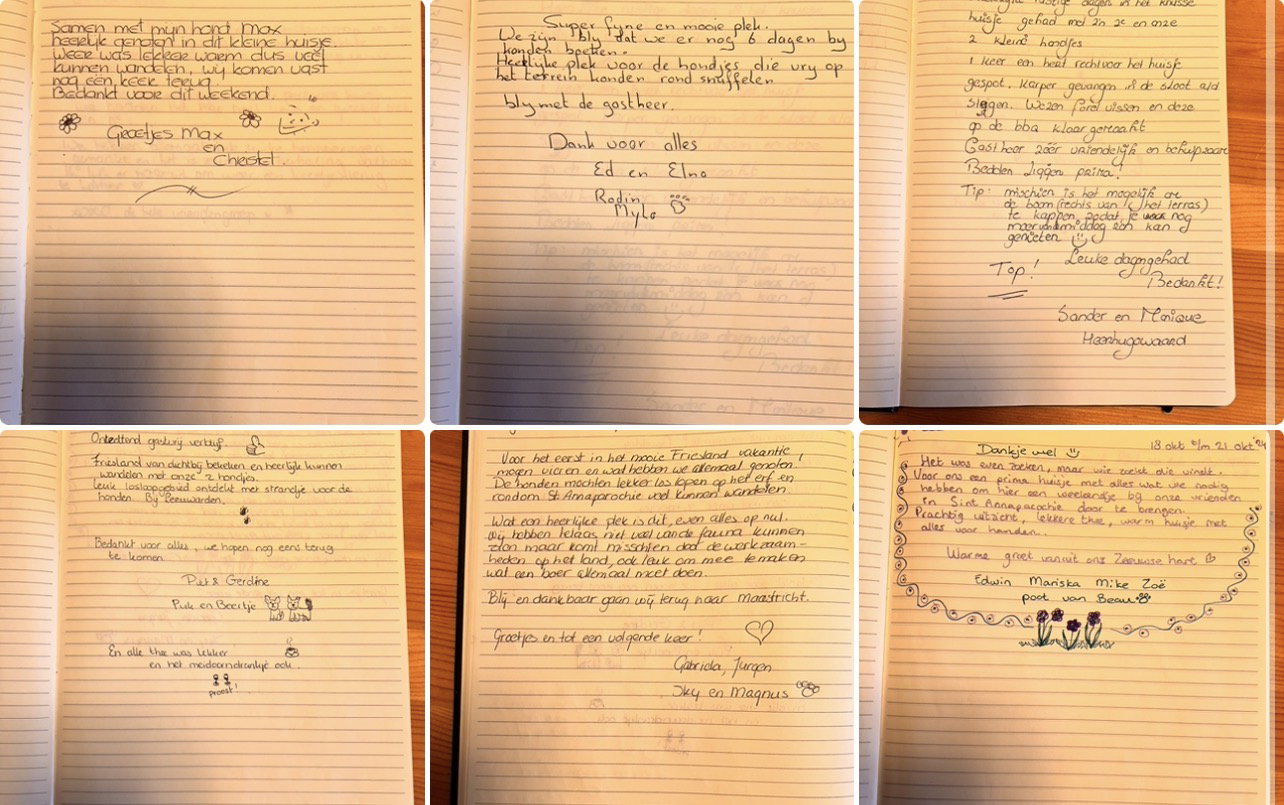 Samen met mijn hond Max
heerlijk genoten in dit kleine huisje.
weer was lekker warm dus veel
kunnen wandelen, wij komen vast
nog een keer terug
Bedankt voor dit weekend.
Groetjes Max
en
Christel.
Super fyne en mooie plek.
We zijn bly dat we er nog 6 dagen by
konden boeken.
Heerlijke plek voor de hondjes die vry op
het terrein konden rond snuffelen
bly met de gastheer.
Dank voor alles
Ed en Elna
Rodin
Mylo
rustige dagen in het knusse
huisje gehad met z'n 2e en onze
2 kleine hondjes
1 keer een heel rechtvoor het huisje
gespot. Karper gevangen in de sloot ald
slggen. Wezen forel vissen en deze
op de bba klaar gemaakt
Gastheer zéér vriendelijk en behulpzaam
Bedden liggen prima!
Tip: mischien is het mogelijk om
de boom (rechts van het terras)
te kappen zodat je nog
meer van de middag zon kan
genieten
Top!
Leuke dagen gehad
Bedankt!
Sander en Monique
Heerhugowaard
Ontzettend gastvrij verblijf.
Friesland van dichtbij bekeken en heerlijk kunnen
wandelen met onze 2 hondjes.
Leuk losloopgebied ontdekt met strandje voor de
honden. Bij Leeuwarden.
Bedankt voor alles, we hopen nog eens terug
te komen.
Piet & Gerdine
Puk en Beertje
En alle thee was lekker
en het meidoorndrankje ook.
proost!
Voor het eerst in het mooie Friesland vakantie
mogen vieren en wat hebben we allemaal genoten.
De honden mochten lekker los lopen op het erf en
rondom St Annaparochie veel kunnen wandelen.
Wat een heerlijke plek is dit, even alles op nul.
Wij hebben helaas niet veel van de fauna kunnen
zien maar komt misschien door de werkzaam-
heden op het land, ook leuk om mee te maken
wat een boer allemaal moet doen.
Blij en dankbaar gaan wij terug naar Maastricht.
Groetjes en tot een volgende keer!
Gabriela, Jurgen
Sky en Magnus
18 okt t/m 21 okt '24
Dankje wel
Het was even zoeken, maar wie zoekt die vindt.
Voor ons een prima huisje met alles wat we nodig
hebben om hier een weekendje bij onze vrienden
in Sint Annaparochie door te brengen.
Prachtig uitzicht, lekkere thee, warm huisje met
alles voor handen..
Warme groet vanuit ons Zeeuwse hart
Edwin Mariska Mike Zoë
poot van Beau